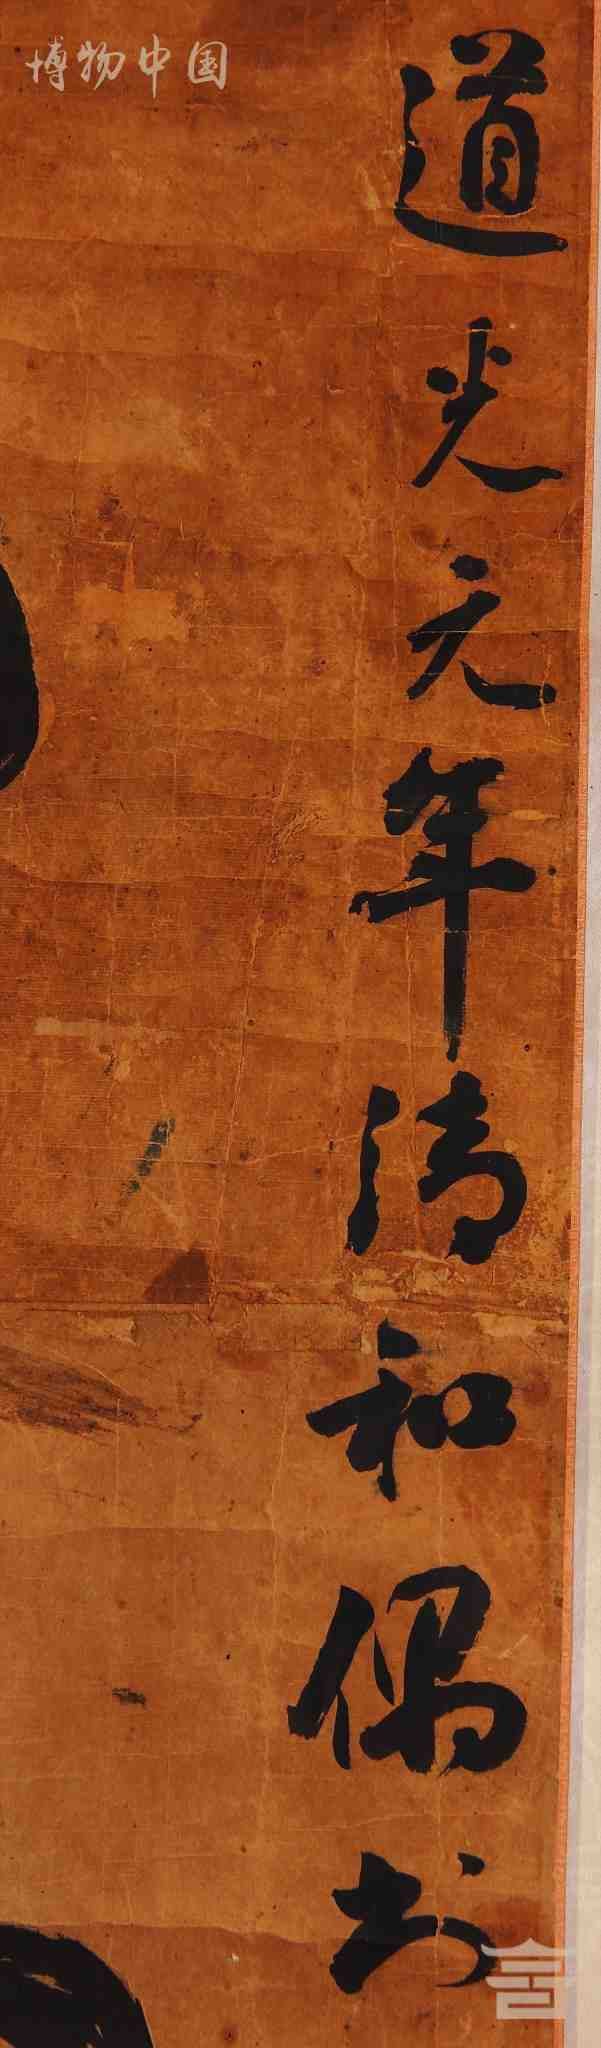 博物中国
道光元年清和偶书